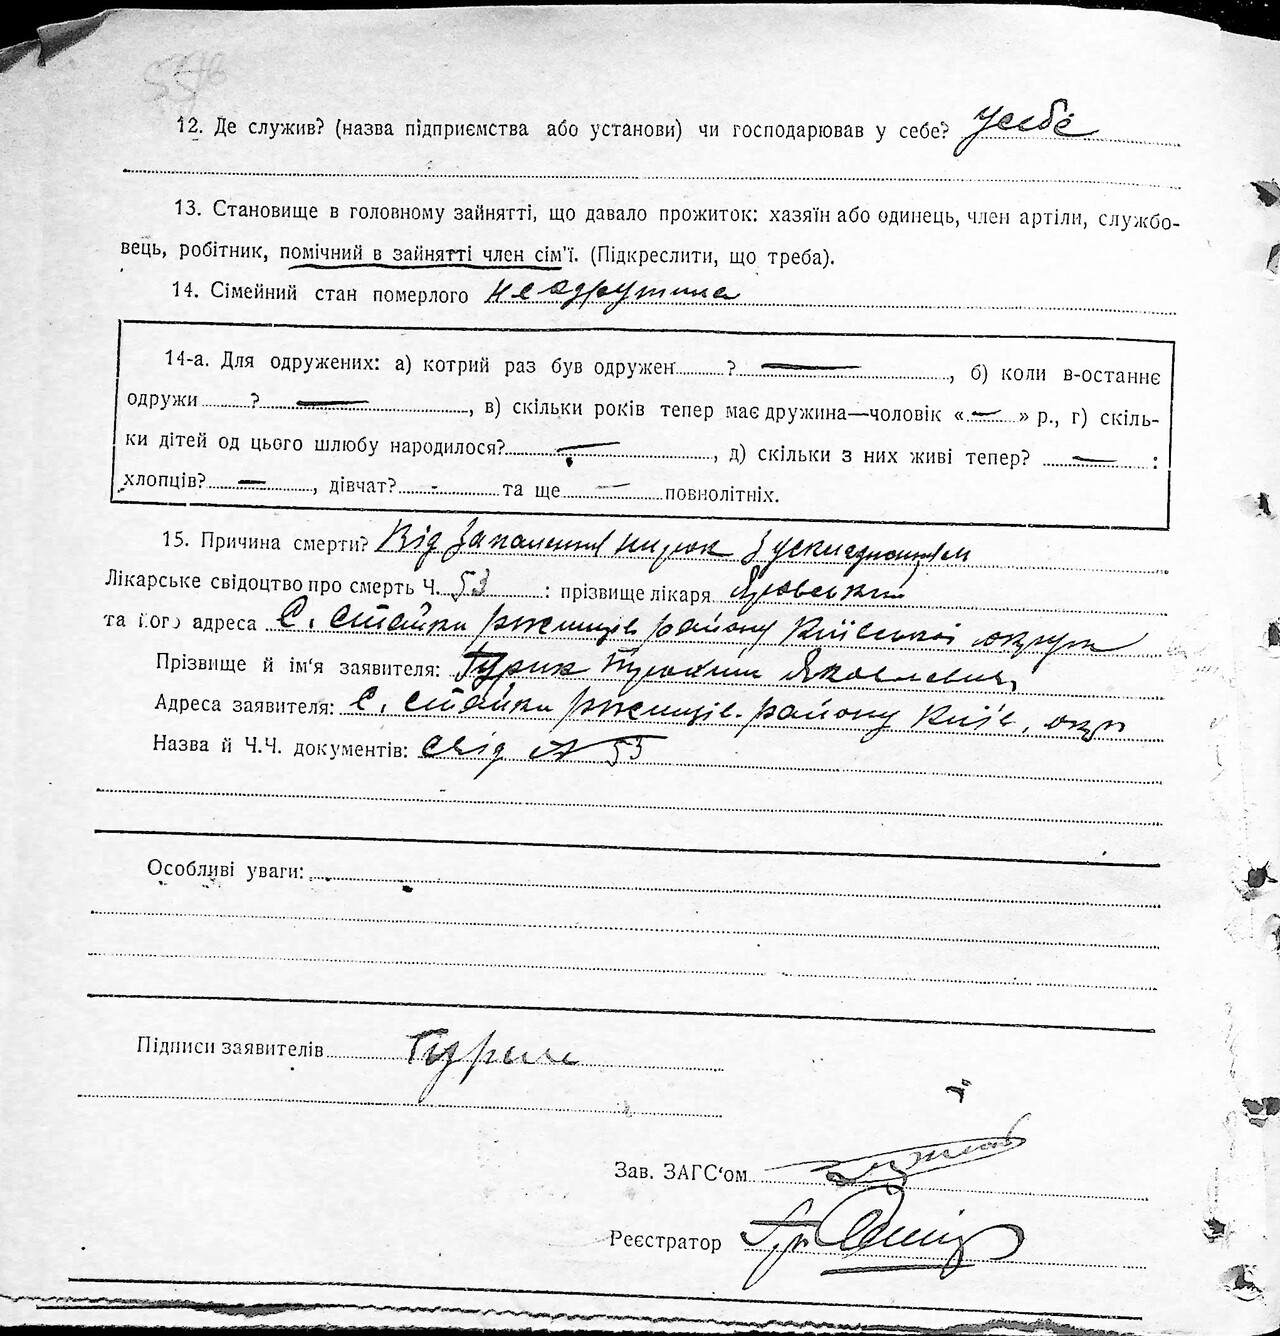 12. Де служив? (назва підприємства або установи) чи господарював у себе? у себе
13. Становище в головному зайнятті, що давало прожиток: хазяїн або одинець, член артіли, службо-
вець, робітник, помічний в зайнятті член сім'ї. (Підкреслити, що треба).
14. Сімейний стан померлого неодружина
14-а. Для одружених: а) котрий раз був одружен ? —, б) коли в-останнє
одружи ? —, в) скільки років тепер має дружина—чоловік «—» р., г) скіль-
ки дітей од цього шлюбу народилося? —, д) скільки з них живі тепер? — :
хлопців? —, дівчат? - та ще — повнолітніх.
15. Причина смерти? Від запалення нирок з ускладненням
Лікарське свідоцтво про смерть Ч. 53 : прізвище лікаря
та його адреса С. Стайки ржищів. району Київської округи
Прізвище й ім'я заявителя: Гурин Яковлевич
Адреса заявителя: С. Стайки ржищів. району Київ. окр
Назва й Ч.Ч. документів: свід № 53
Особливі уваги:
Підписи заявителів Гурин
Зав. ЗАГС'ом
Реєстратор